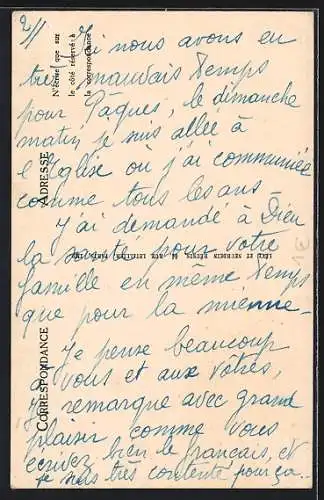 2//
Ici nous avons eu
très mauvais temps
pour Pâques, le dimanche
matin, je suis allée à
l'Eglise où j'ai communiée
comme tous les ans -
J'ai demandé à Dieu
la santé pour votre
famille en même temps
que pour la mienne -
Je pense beaucoup
à vous et aux vôtres,
Je remarque avec grand
plaisir comme vous
écrivez bien le français, et
je suis très contente pour ça..
N'écrire que sur
le côté réservé à
la correspondance
ADRESSE
CORRESPONDANCE
1€